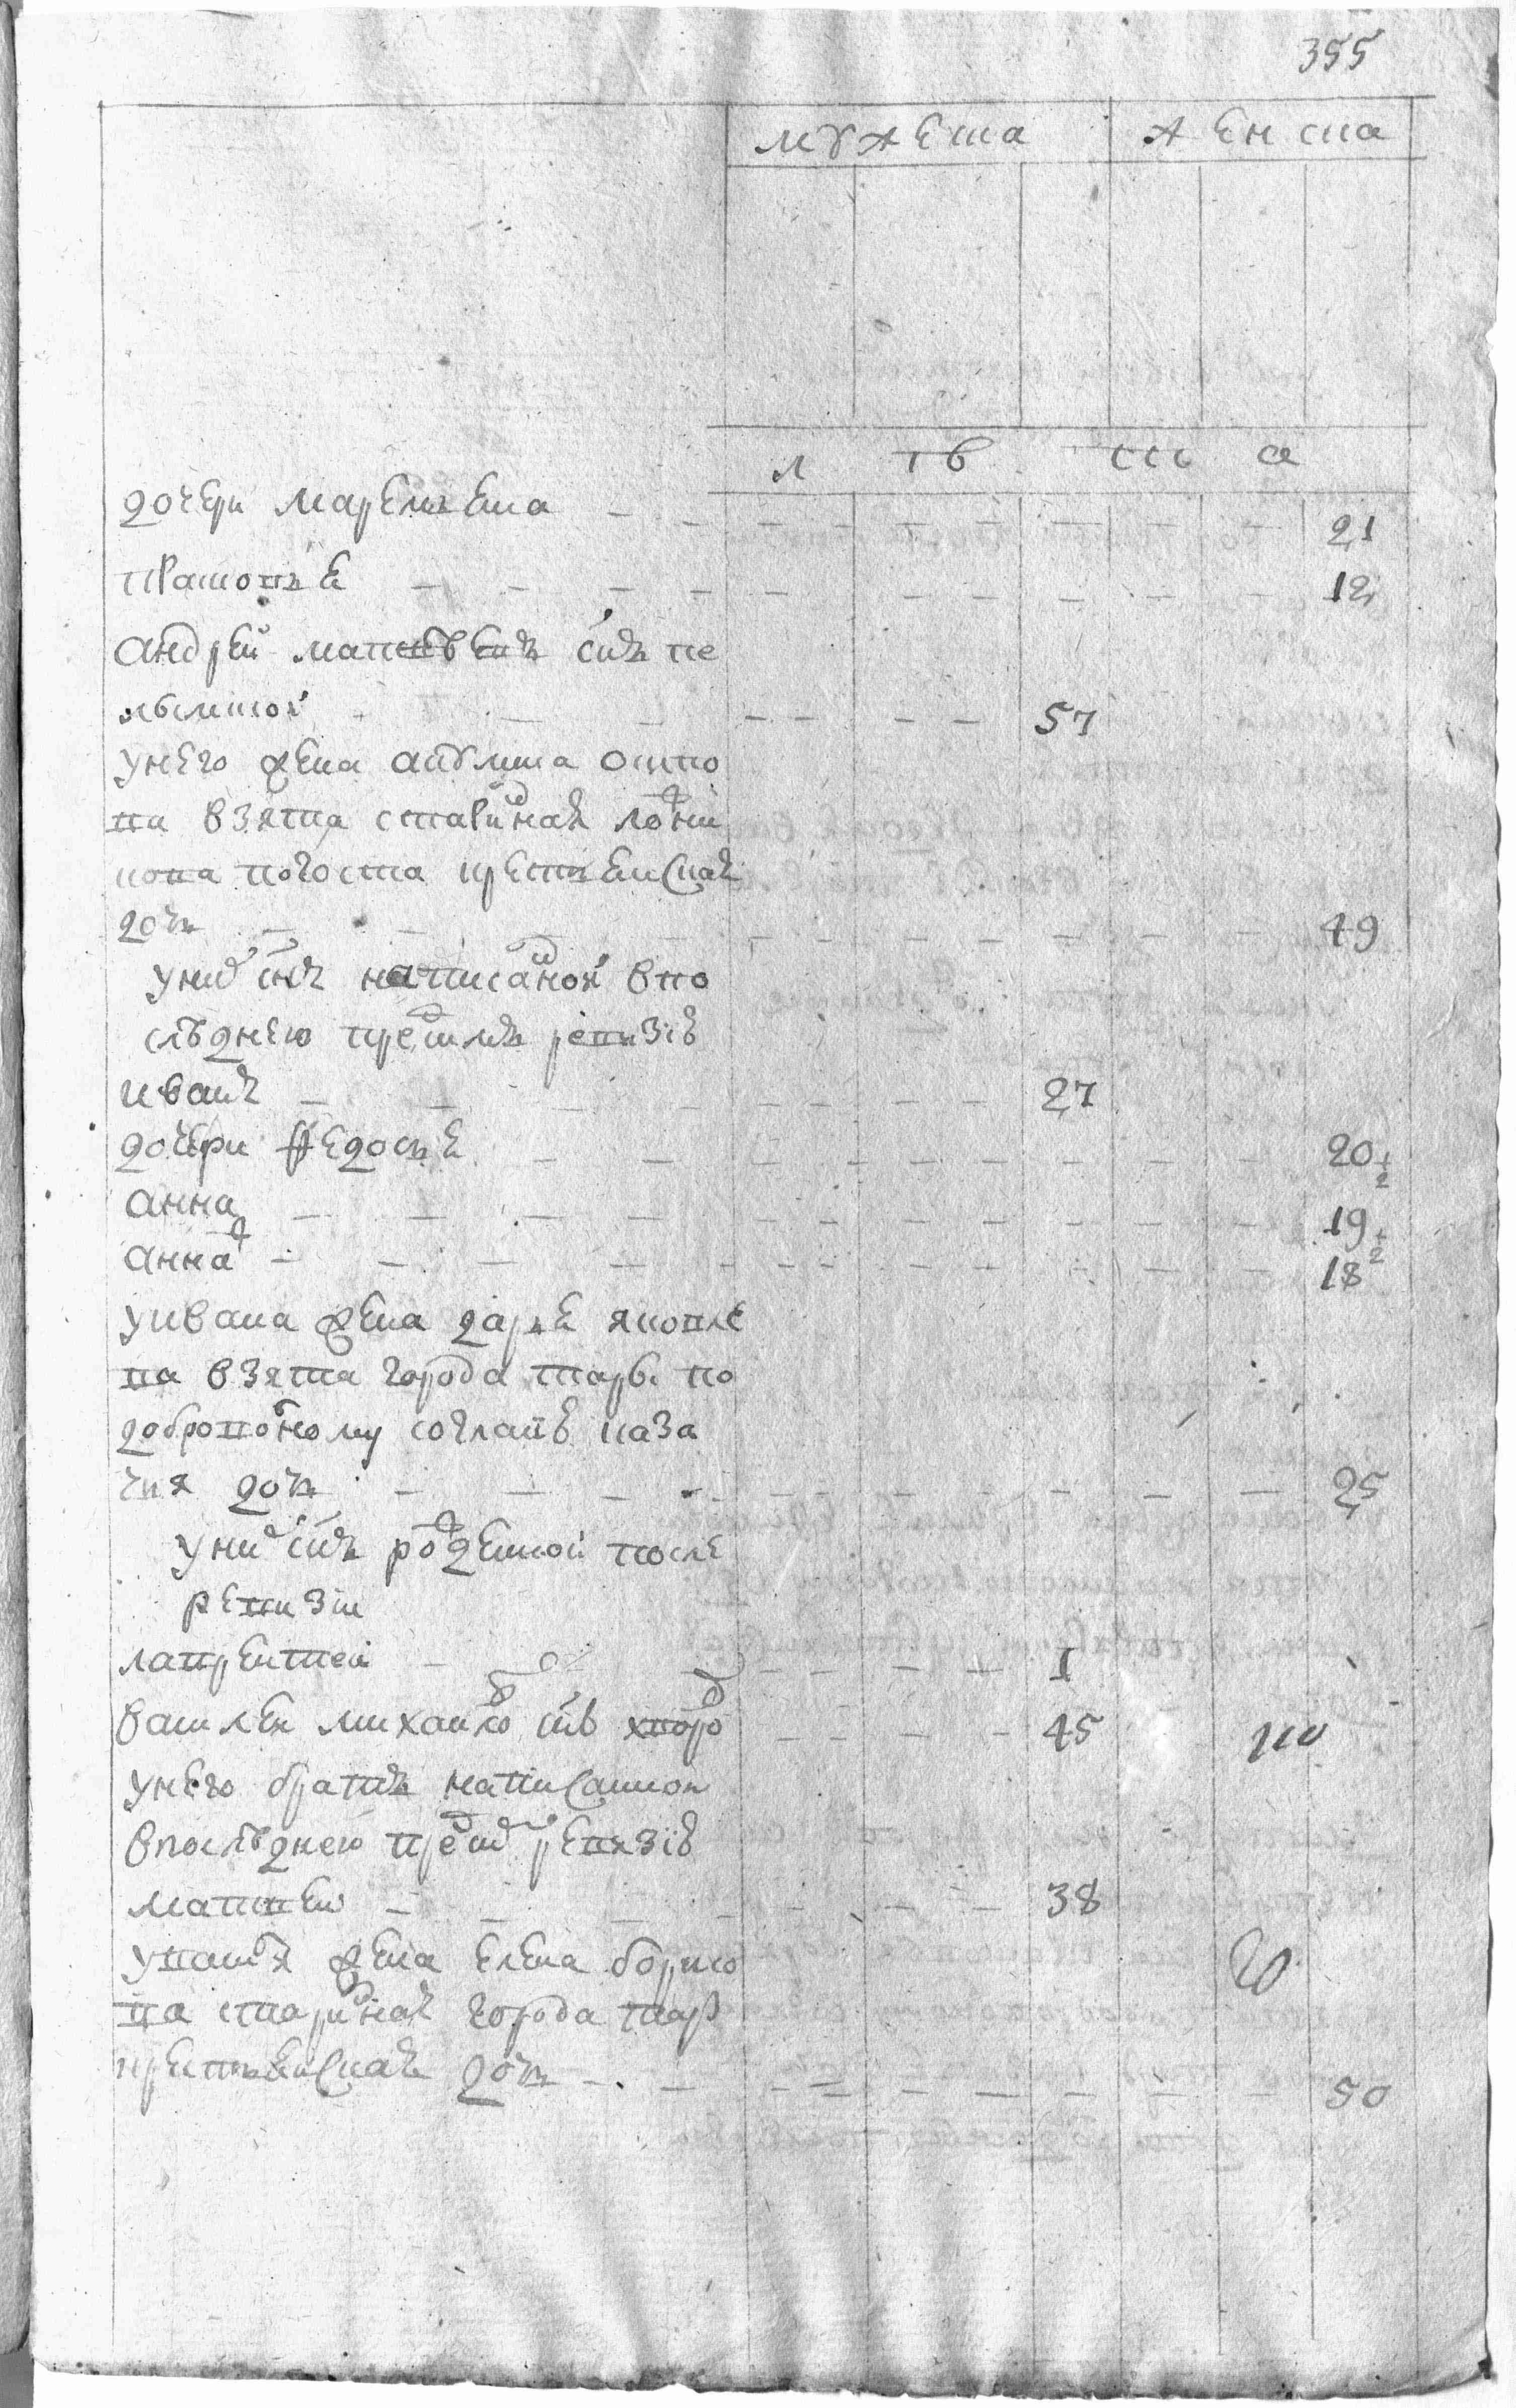 355
мужеска женска
лѣ тв ста
дочери маремьена 21
праскопья 12
андреи матвѣевъ сынъ пе
лымской 57
унего жена акулина осипо
ва взята старинная ложни
кова погоста крестьенская
дочь 49
унихъ сынъ написанной впо
слѣднею предъ симъ ревизiю
иванъ 27
дочери федосья 20
анна 19
анна ж 18
уивана жена дарья яковле
ва взята города тары по
доброволному согласiю каза
чья дочь 25
унихъ сынъ рожденной после
ревизiи
лаврентей 1
василеи михаиловъ снъ хворо 45
унего братъ написанной
впослѣднею предъ ревизiю
матвеи 38
уматвѣя жена елена борисо
ва старинная города тары
крестьенская дочь 50